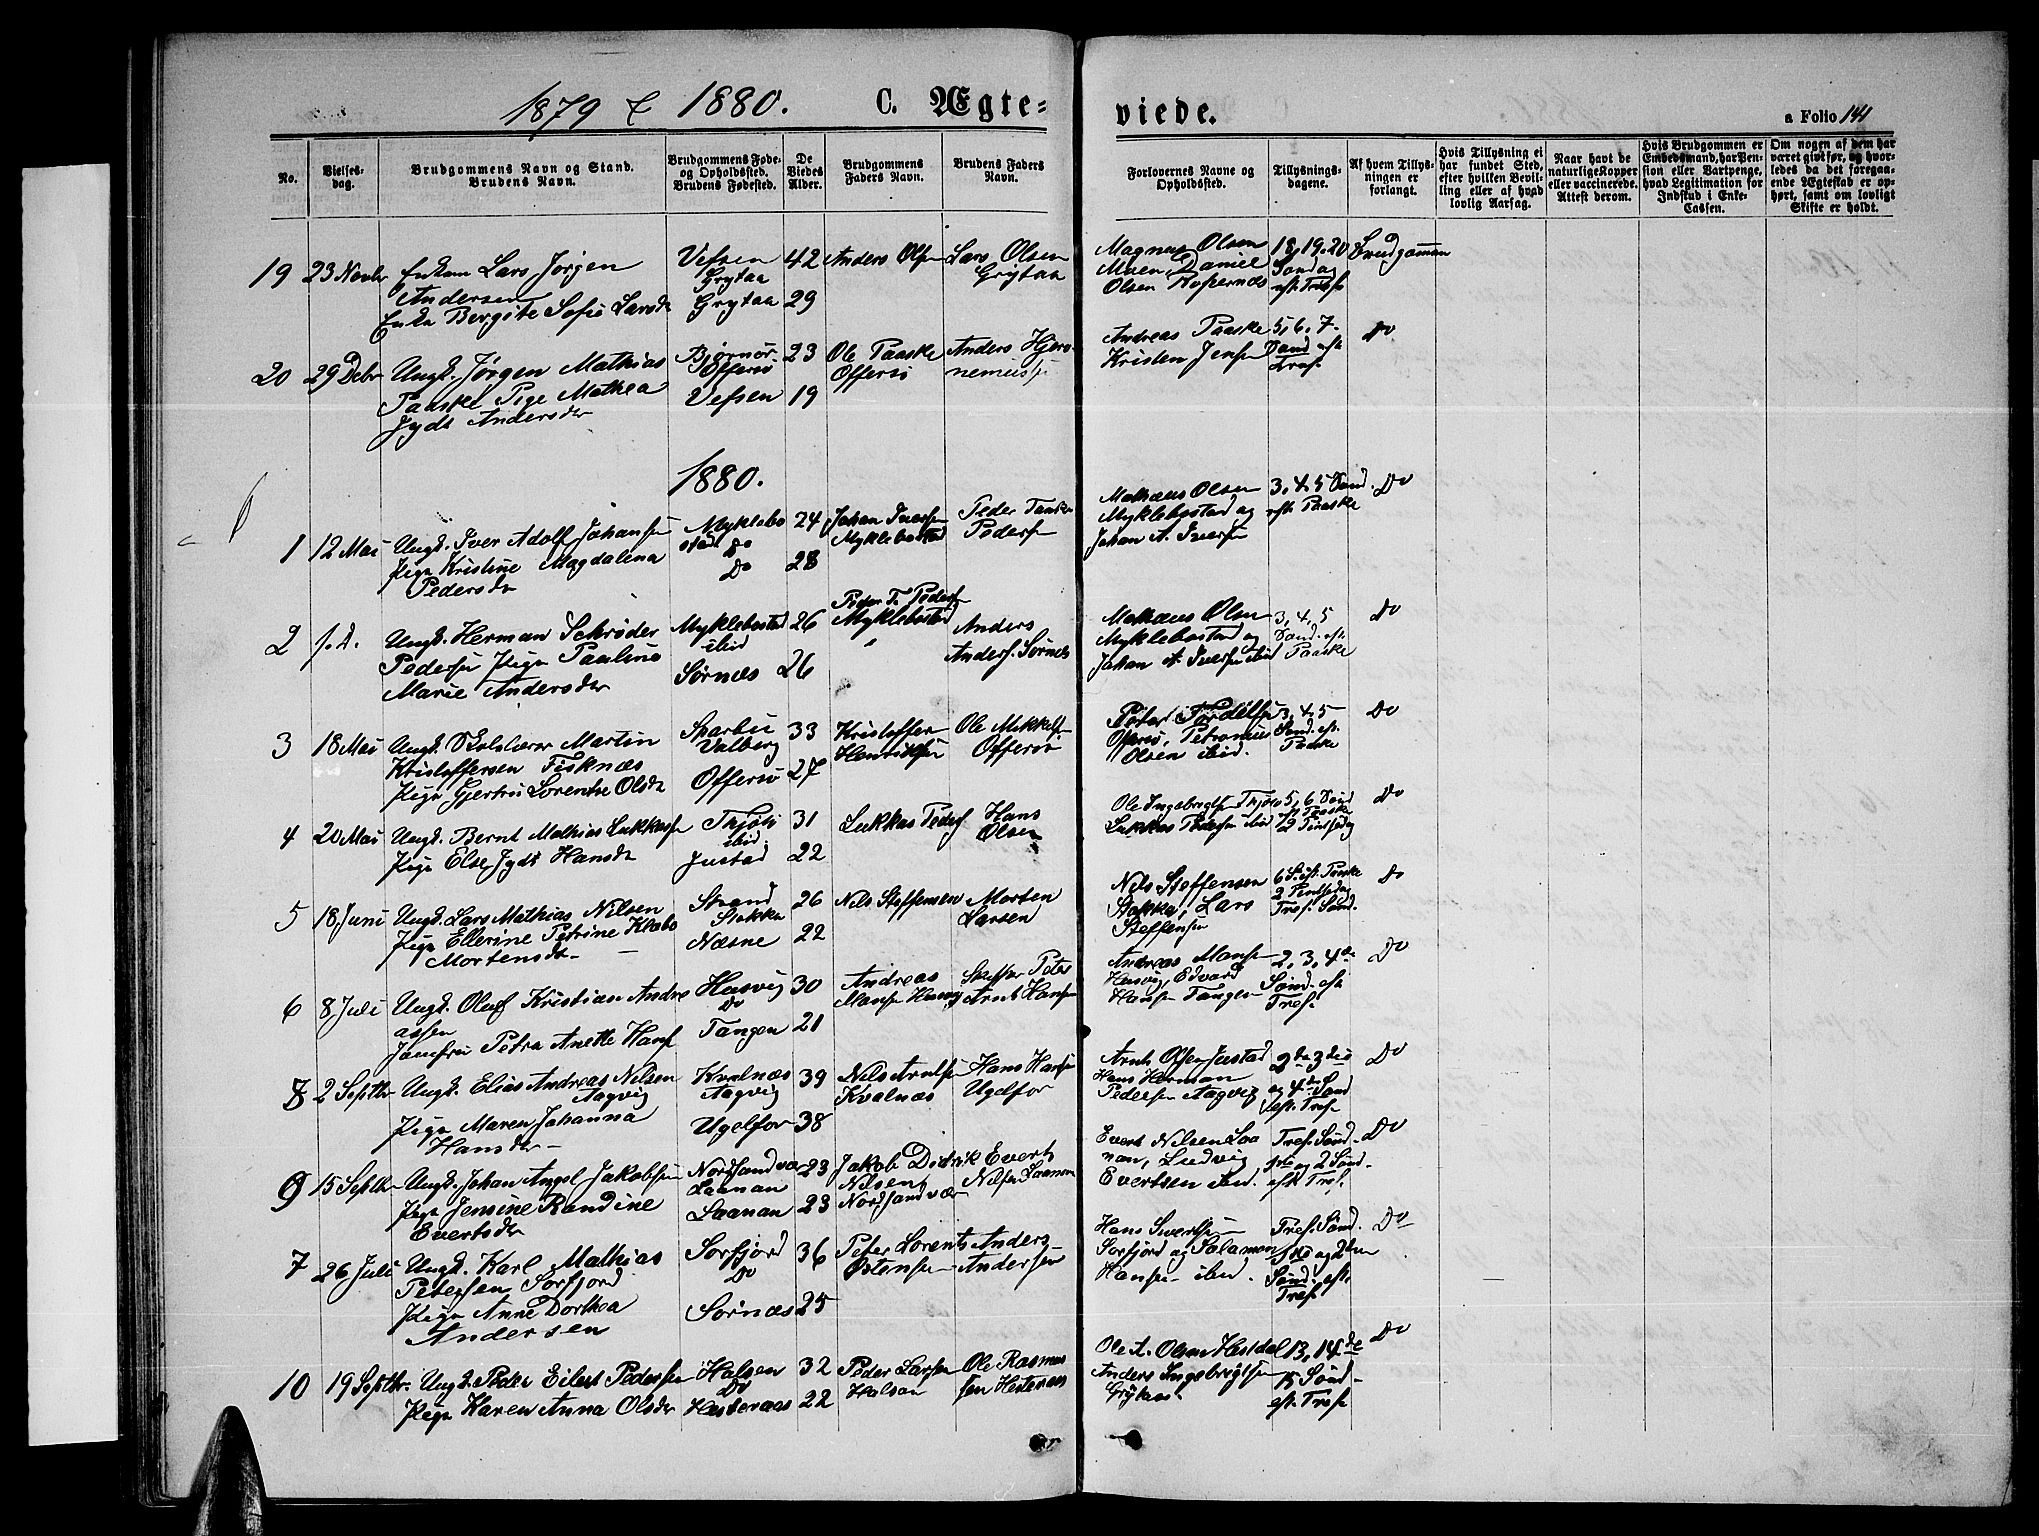 1879 & 1880. C. Ægte=
viede.
a Folio 141
No.
Vielses-
dag.
Brudgommens Navn og Stand.
Brudens Navn.
Brudgommens Føde-
og Opholdssted.
Brudens Fødested.
De
Viedes
Alder.
Brudgommens
Faders Navn.
Brudens Faders
Navn.
Forlovernes Navne og
Opholdssted.
Tillysnings-
dagene.
Af hvem Tillys-
ningen er
forlangt.
Hvis Tillysning ei
har fundet Sted,
efter hvilken Bevil-
ling eller af hvad
lovlig Aarsag.
Naar havt de
naturlige Kopper
eller vaccinerede.
Attest derom.
Hvis Brudgommen er
Embedsmand, har Pen-
sion eller Vartpenge,
hvad Legitimation for
Indskud i Enke-
Cassen.
Om nogen af dem har
været givt før, og hvor-
ledes da det foregaa-
ende Ægteskab er op-
hørt, samt om lovligt
Skifte er holdt.
19 23 Novbr Enkem Lars Jørgen
Andersen
Enke Bergite Sofie Larsdr
Vefsen 42
Grytaa
Grytaa 29
Anders Olsen
Lars Olsen
Grytaa
Magnus Olsen
Moen, Daniel
Olsen
18, 19. 20
Søndag
eft. Trefs
Brudgommen
20 29 Debr Ungk. Jørgen Mathias
Paaske Pige Mathea
Jydt Andersdr
Bjørnør 23
Offersø
Vefsen 19
Ole Paaske
Offersø
Anders Hjero-
nemus
Andreas Paaske
Kristen Jensen
5, 6, 7-
Sønd eft
Tref.
Do
1880.
1 12 Mai Ungk. Iver Adolf Johansen
Pige Kristine Magdalena
Pedersdr
Myklebo 24
stad Do
Do 28
Johan Iversen
Myklebostad
Peder
Pedersen
Mathæus Olsen
Myklebostad og
Johan A. Iversen
3, 4, 5 Sønd.
eft Paaske
Do
2 s. d. Ungk. Herman Schrøder
Pedersen Pige Pauline
Marie Andersdr
Myklebostad 26
ibid
Sørnæs 26
Peder T. Pedersen
Myklebostad
Anders
Anders. Sørnes
Mathæus Olsen
Myklebostad og
Johan A. Iversen ibid
3, 4, 5
Sønd. eft
Paaske
Do
3 18 Mai Ungk. Skolelærer Martin
Kristoffersen Fisknæs
Pige Gjertru Lorentse Olsdr
Sparbu 33
Valberg
Offersø 27
Kristoffer
Henriksen
Ole Mikkelsen
Offersø
Peter
Offersø, Petronius
Olsen ibid.
3, 4, 5
Sønd. eft.
Paaske
Do
4 20 Mai Ungk. Bernt Mathias Lukkassen
Pige Else Jydt Hansdr
Thjøtø 31
ibid
Justad 22
Lukkas Peders
Hans
Olsen
Ole Ingebrigtsen Thjøtø
Lukkas Pedersen ibid
5, 6 Sønd
eft Paaske
2 Pintsedag
Do
5 18 Juni Ungk. Lars Mathias Nilsen
Pige Ellerine Petrine Klabo
Mortensdr
Strand 26
Stokka
Næsne 22
Nils Steffensen
Morten
Larsen
Nils Steffensen
Stokka, Lars
Steffensen
6 S. eft. Paaske
2 Pintsedag
Tref. Sønd.
Do
6 8 Juli Ungk. Oluf Kristian Andre
assen
Jomfru Petra Anette Hans
Husvig 30
Do
Tangen 21
Andreas
Hansen Husvig
Peter
Arnt Hansen
Andreas Hansen
Husvig, Edvard
Hansen Tangen
2, 3, 4de
Sønd. eft
Tref.
Do
8 2 Septbr Ungk. Elias Andreas Nilsen
Aagvig
Pige Maren Johanna
Hansdr
Kvalnæs 39
Aagvig
Ugelfor 38
Nils Arntsen
Kvalnæs
Hans Hansen
Ugelfor
Arnt Olsen Justad
Hans Herman
Pedersen Aagvig
2den 3die
og 4de Sønd
eft. Tref
Do
9 15 Septbr Ungk. Johan Angel Jakobsen
Pige Jensine Randine
Evertsdr
Nordsandvær 23
Laanan
Laanan 23
Jakob Didrik
Nilsen
Nordsandvær
Evert
Nilsen Laanan
Evert Nilsen Laa
nan, Ludvig
Evertsen ibid.
Tref. Sønd-
1ste og 2 Sønd.
eft Tref.
Do
7 26 Juli Ungk. Karl Mathias
Petersen Sørfjord
Pige Anne Dorthea
Andersen
Sørfjord 36
Do
Sørnæs 25
Peter Lorents
Østensen
Anders
Andersen
Hans Sivertsen
Sørfjord og Salamon
Hansen ibid.
Tref. Sønd.
1ste og 2den
Sønd. eft.
Tref.
Do
10 19 Septbr. Ungk. Peder Eilert Pedersen
Pige Karen Anna Olsdr
Halsen 32
Do
Hestenæs 22
Peder Larsen
Halsen
Ole Rasmus
sen Hestenæs
Ole A. Olsen Hestdal
Anders Ingebrigtsen
Grytaa
13, 14de
15 Sønd-
eft. Tref
Do